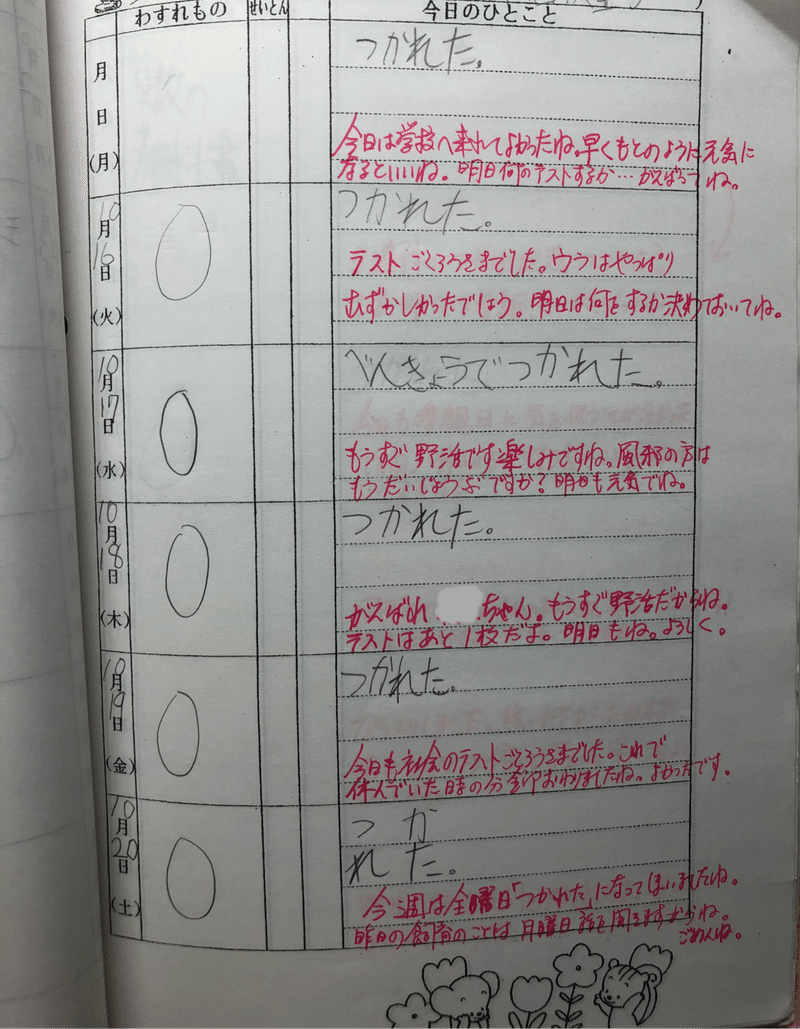 わすれもの せいとん 今日のひとこと
月
日
(月)
つかれた。
今日は学校へ来れてよかったね。早くもとのように元気に
なるといいね。明日何のテストするか…がんばってね。
10
月
16
日
(火)
つかれた。
テスト ごくろうさまでした。ウラはやっぱり
むずかしかったでしょう。明日は何をするか決めておいてね。
10
月
17
日
(水)
べんきょうでつかれた。
もうすぐ野活です楽しみですね。風邪の方は
もうだいじょうぶですか?明日も元気でね。
10
月
18
日
(木)
つかれた。
がんばれ ちゃん。もうすぐ野活だからね。
テストはあと1枚だよ。明日もね。よろしく。
10
月
19
日
(金)
つかれた。
今日も社会のテストごくろうさまでした。これで
休んでいた時の分全部おわりましたね。よかったです。
10
月
20
日
(土)
つか
れた。
今週は全曜日「つかれた」になってしまいましたね。
昨日の飼育のことは月曜日 話を聞きますからね。
ごめんね。